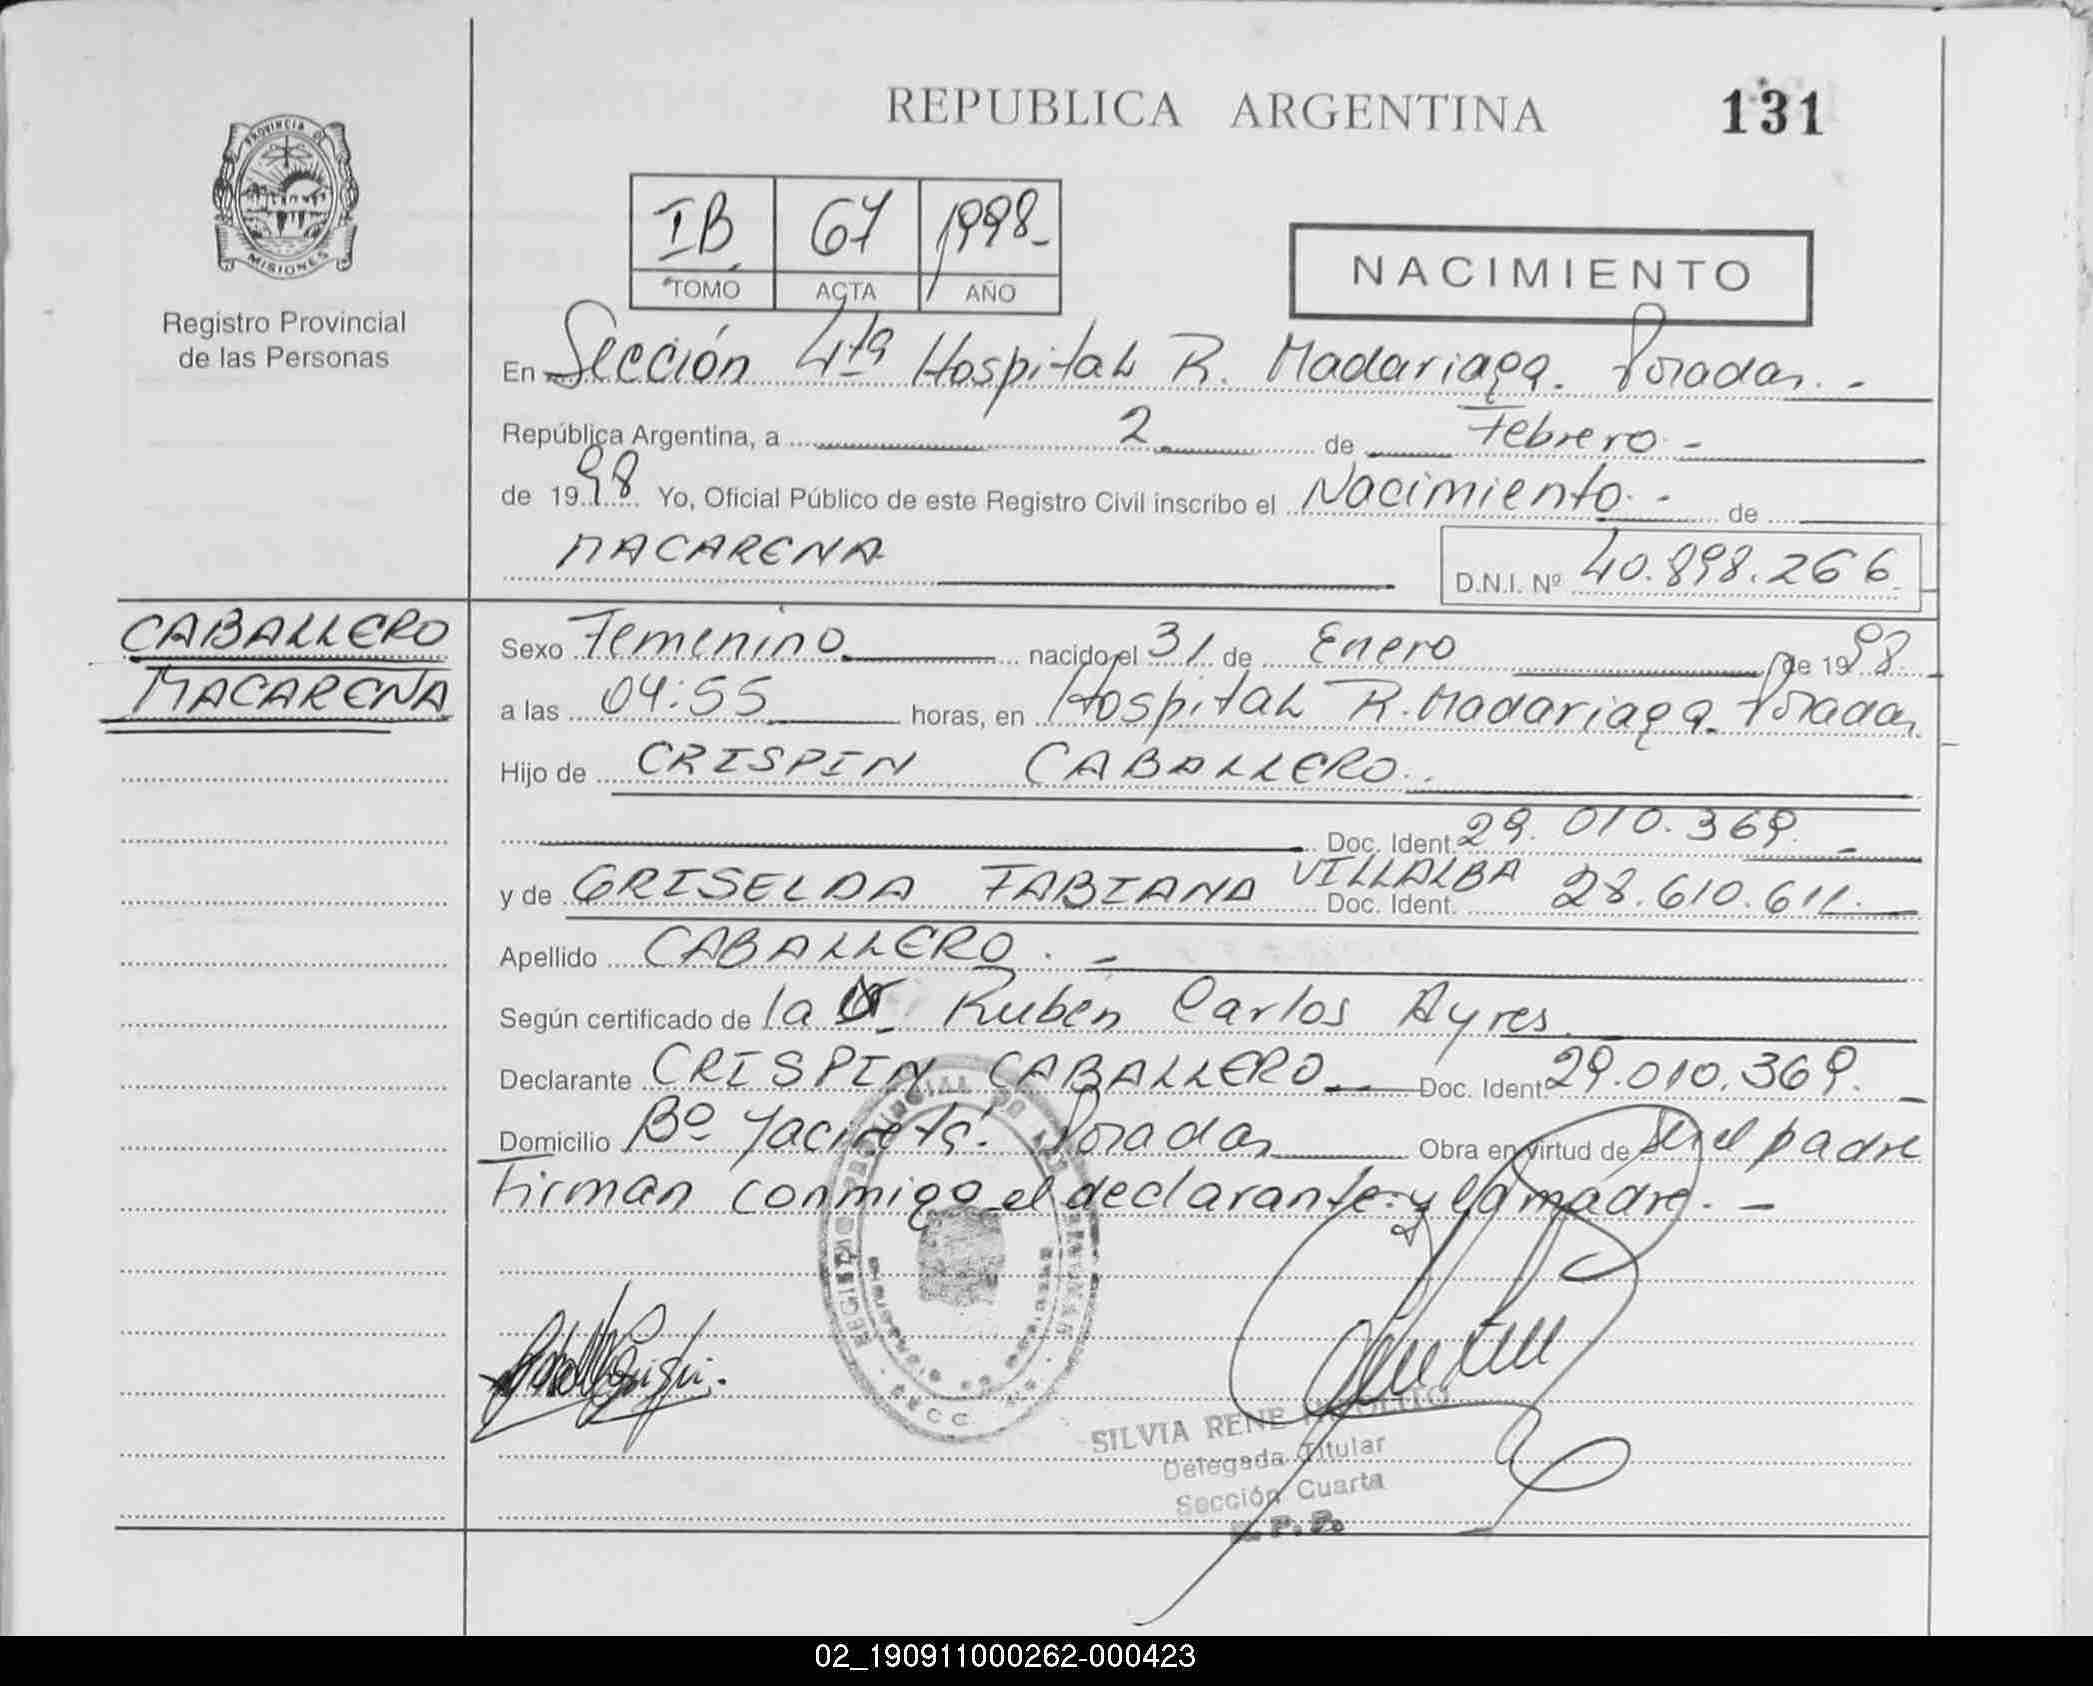 REPUBLICA ARGENTINA 131
PROVINCIA DE
MISIONES
Registro Provincial
de las Personas
IB 67 1998.-
TOMO ACTA AÑO
NACIMIENTO
En Sección 4ta Hospital R. Madariaga. Posadas. -
República Argentina, a 2 de Febrero. -
de 1998 Yo, Oficial Público de este Registro Civil inscribo el Nacimiento. - de
MACARENA
D.N.I. Nº 40.898.266
CABALLERO
MACARENA
Sexo Femenino nacido el 31 de Enero de 1998
a las 04:55 horas, en Hospital R. Madariaga. Posadas
Hijo de CRISPIN CABALLERO.
Doc. Ident. 29.010.369. -
y de GRISELDA FABIANA VILLALBA Doc. Ident. 28.610.611.
Apellido CABALLERO. -
Según certificado de la Ruben Carlos Ayres
Declarante CRISPIN CABALLERO Doc. Ident. 29.010.369. -
Domicilio Bº Yacireta. Posadas Obra en virtud de ser el padre
Firman conmigo el declarante y la madre. -
SILVIA RENE
Delegada Titular
Sección Cuarta
02_190911000262-000423